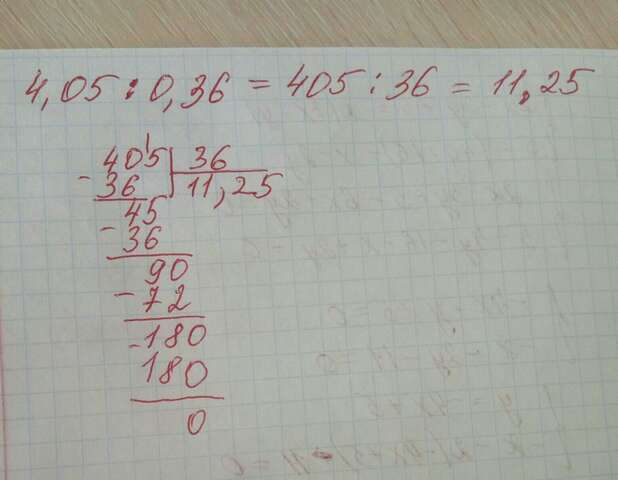 4,05 : 0,36 = 405 : 36 = 11,25
405 | 36
- 36 | 11,25
45
- 36
90
- 72
- 180
180
0